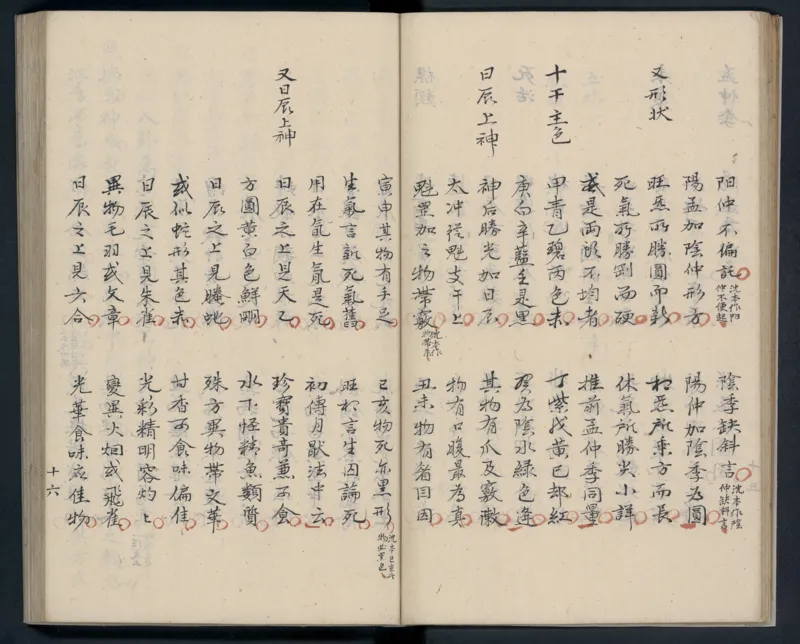 阳仲不偏訛 沈本作阳仲不便起 陰季缺斜言 沈本作陰仲缺斜言
陽孟加陰仲形方 陽仲加陰季為圓
又形状 旺炁所勝圓而新 相炁所乘方而長
死氣所勝剛而硬 休氣所勝尖小詳
或是兩頭不均者 推前孟仲季同量
十干主色 甲青乙碧丙色赤 丁紫戊黃已都紅
庚白辛藍壬是黑 癸為陰水綠色逢
日辰上神 神后勝光加日辰 其物有爪及竅
太冲從魁支干上 物有口腹最為真
魁罡加之物帶竅 沈本作物帶 丑未物有 目因
寅申其物有手足 巳亥物死亦黑形 沈本 物必黑色
生氣言新死氣舊 旺相言生囚論死
用在氣生氣是死 初傳月猒法中云
又日辰上神 日辰之上見天乙 珍寶貴奇兼可食
方圓黃白色鮮明 水下怪精魚類質
日辰之上見螣蛇 殊方異物帶文華
或似蛇形其色赤 甘香可食味偏佳
日辰之上見朱雀 光彩精明容灼灼
異物毛羽或文章 變異火烟或飛雀
日辰之上見六合 光華食味 佳物
十六